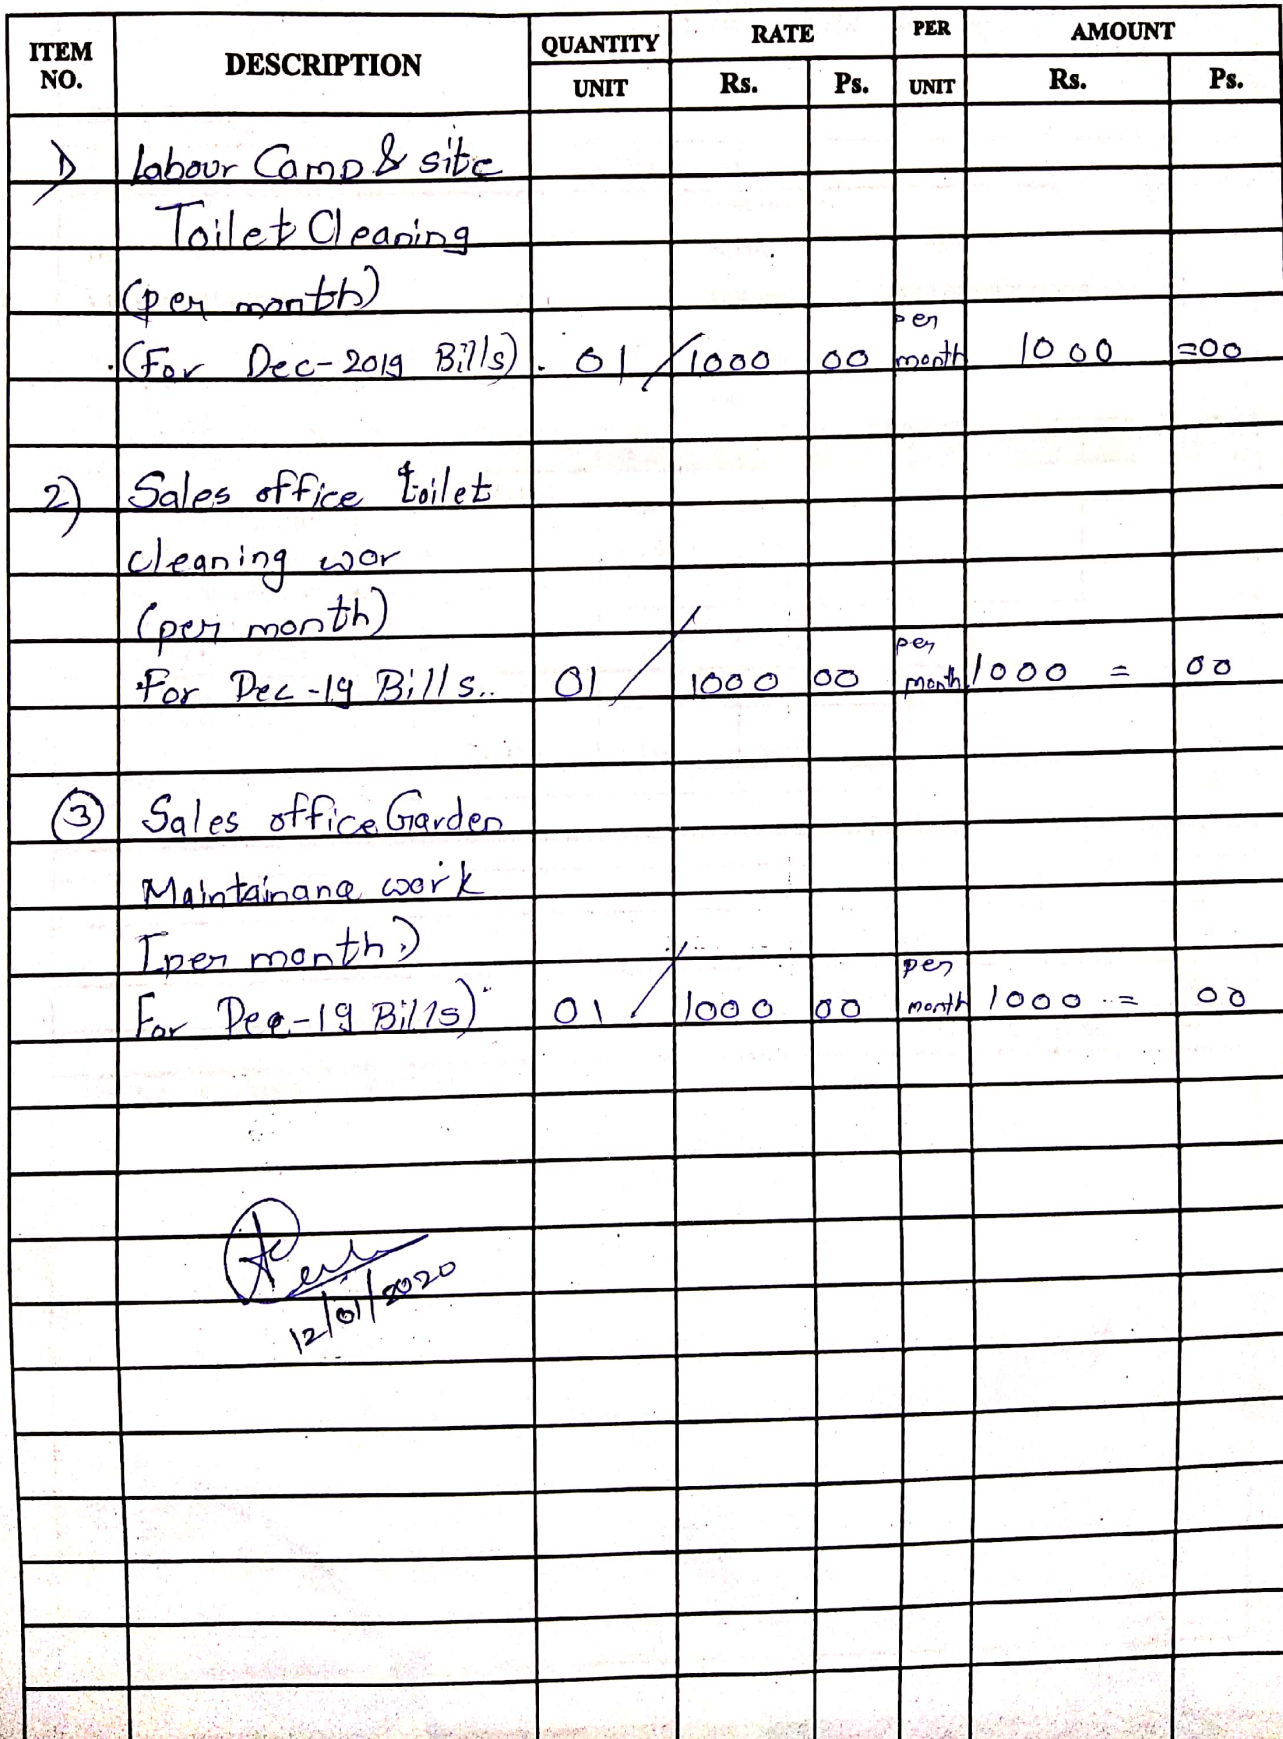 ITEM NO. DESCRIPTION QUANTITY UNIT RATE Rs. Ps. PER UNIT AMOUNT Rs. Ps.
1) Labour Camp & site
Toilet Cleaning
(per month)
(For Dec-2019 Bills). 01 / 1000 00 per month 1000 =00
2) Sales office toilet
cleaning wor
(per month)
For Dec-19 Bills.. 01 / 1000 00 per month 1000 = 00
3 Sales office Garden
Maintainance work
(per month)
For Dec-19 Bills) 01 / 1000 00 per month 1000 = 00
12/01/2020